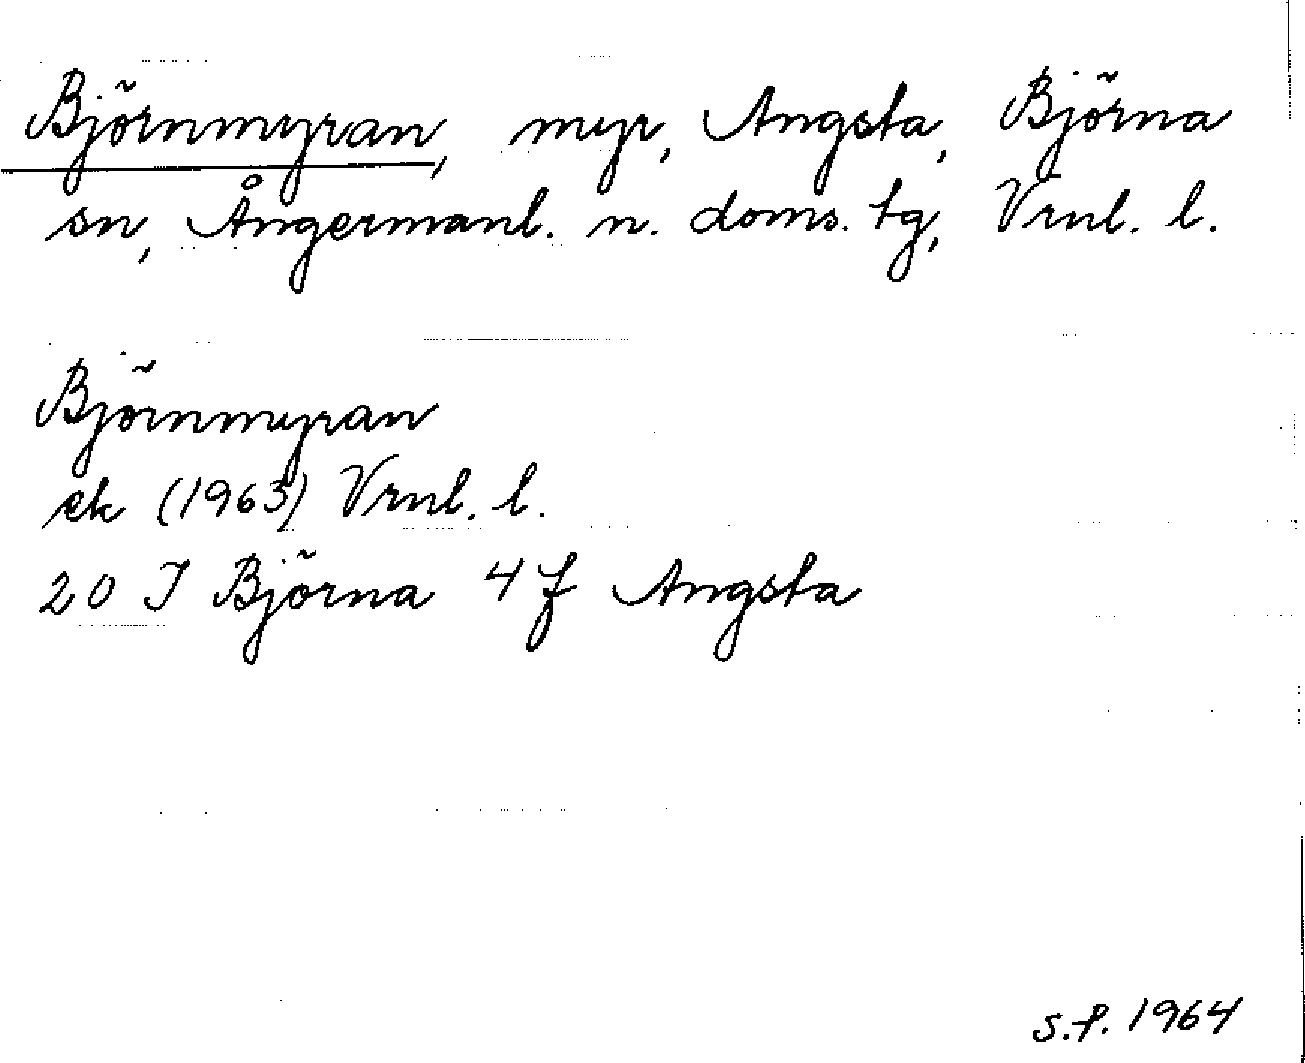 Björnmyran, myr, Angsta, Björna
sn, Ångermanl. n. doms. tg, Vrnl. l.
Björnmyran
ek (1963) Vrnl. l.
20 I Björna 4 f Angsta
S.f. 1964